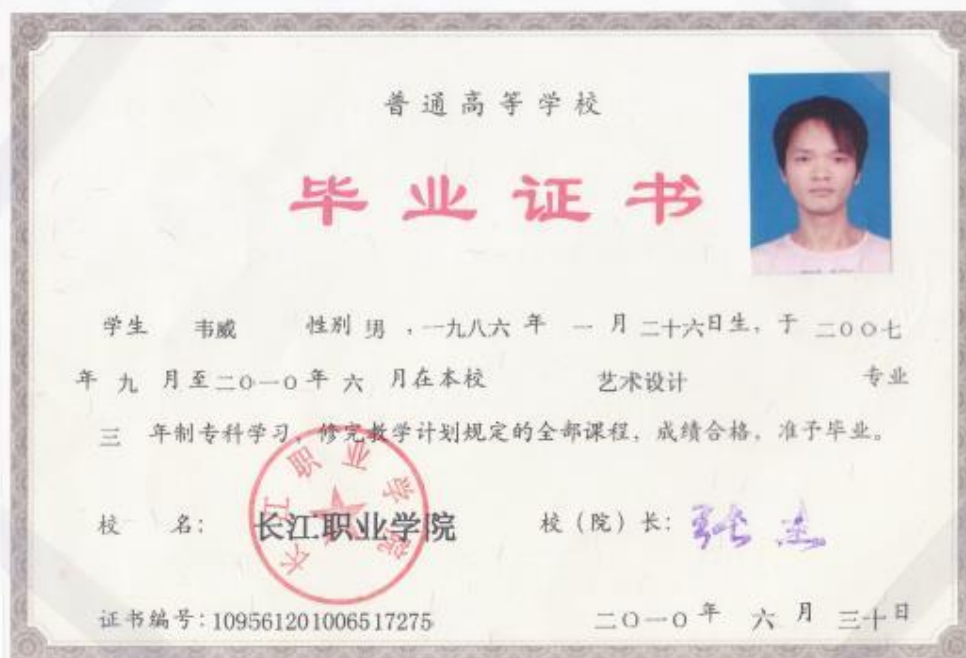 普通高等学校
毕业证书
学生 韦威 性别 男 ,一九八六 年 一 月 二十六日生, 于 二00七
年 九 月至二0一0年 六 月在本校 艺术设计 专业
三 年制专科学习, 修完教学计划规定的全部课程, 成绩合格, 准予毕业。
长江职业学院
校 名: 长江职业学院 校(院)长: 张杰
证书编号:109561201006517275 二0一0年 六 月 三十日